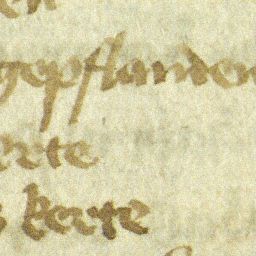 gepflanden
erte
kerte